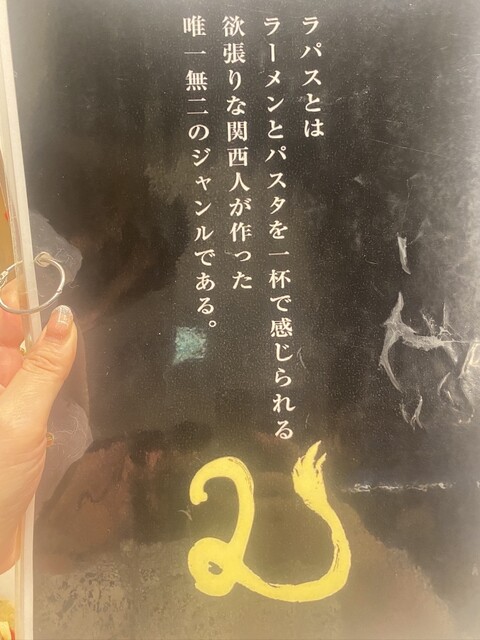 ラパスとは
ラーメンとパスタを一杯で感じられる
欲張りな関西人が作った
唯一無二のジャンルである。